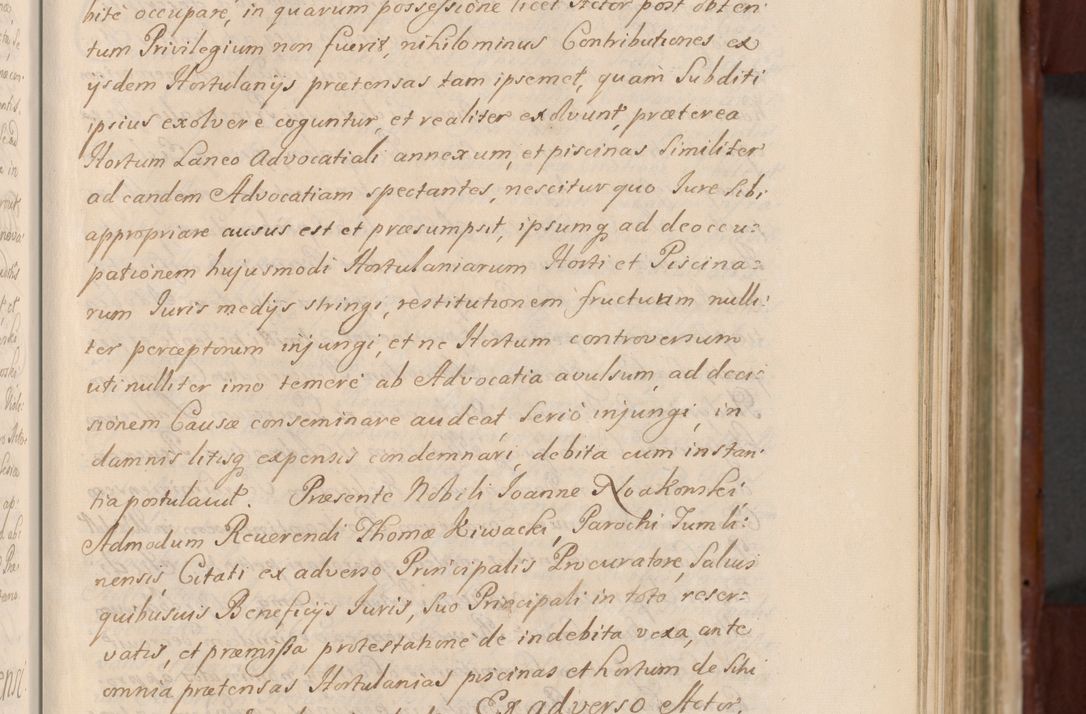 bitè occupare, in quarum possessione licet Actor post obten:
tum Privilegium non fuerit, nihilominus Contributiones ex
ijsdem Hortulanijs prætensas tam ipsemet, quàm Subditi
ipsius exolvere coguntur, et realiter exolvunt, præterea
Hortum Laneo Advocatiali annexum, et piscinas Similiter
ad eandem Advocatiam spectantes, nescitur quo Jure Sibi
appropriare ausus est et præsumpsit, ipsumq ad deoccu:
pationem hujusmodi Hortulaniarum Horti et Piscina:
rum Juris medijs stringi, restitutionem fructuum nulli:
ter perceptorum injungi, et ne Hortum controversum
uti nulliter imo temerè ab Advocatia avulsum, ad deci:
sionem Causæ conseminare audeat, Seriò injungi, in
damnis litisq expensis condemnari, debita cum instan:
tia postulavit. Præsente Nobili Joanne Noakonski
Admodum Reverendi Thomæ Kiwacki, Parochi Tumli:
nensis, Citati ex adverso Principalis Procuratore, Salvis
quibusvis Beneficijs Juris, Suo Principali in toto reser:
vatis, et præmissa protestatione de indebita vexa, ante
omnia prætensas Hortulanias piscinas et hortum de Sibi
Ex adverso Actor.